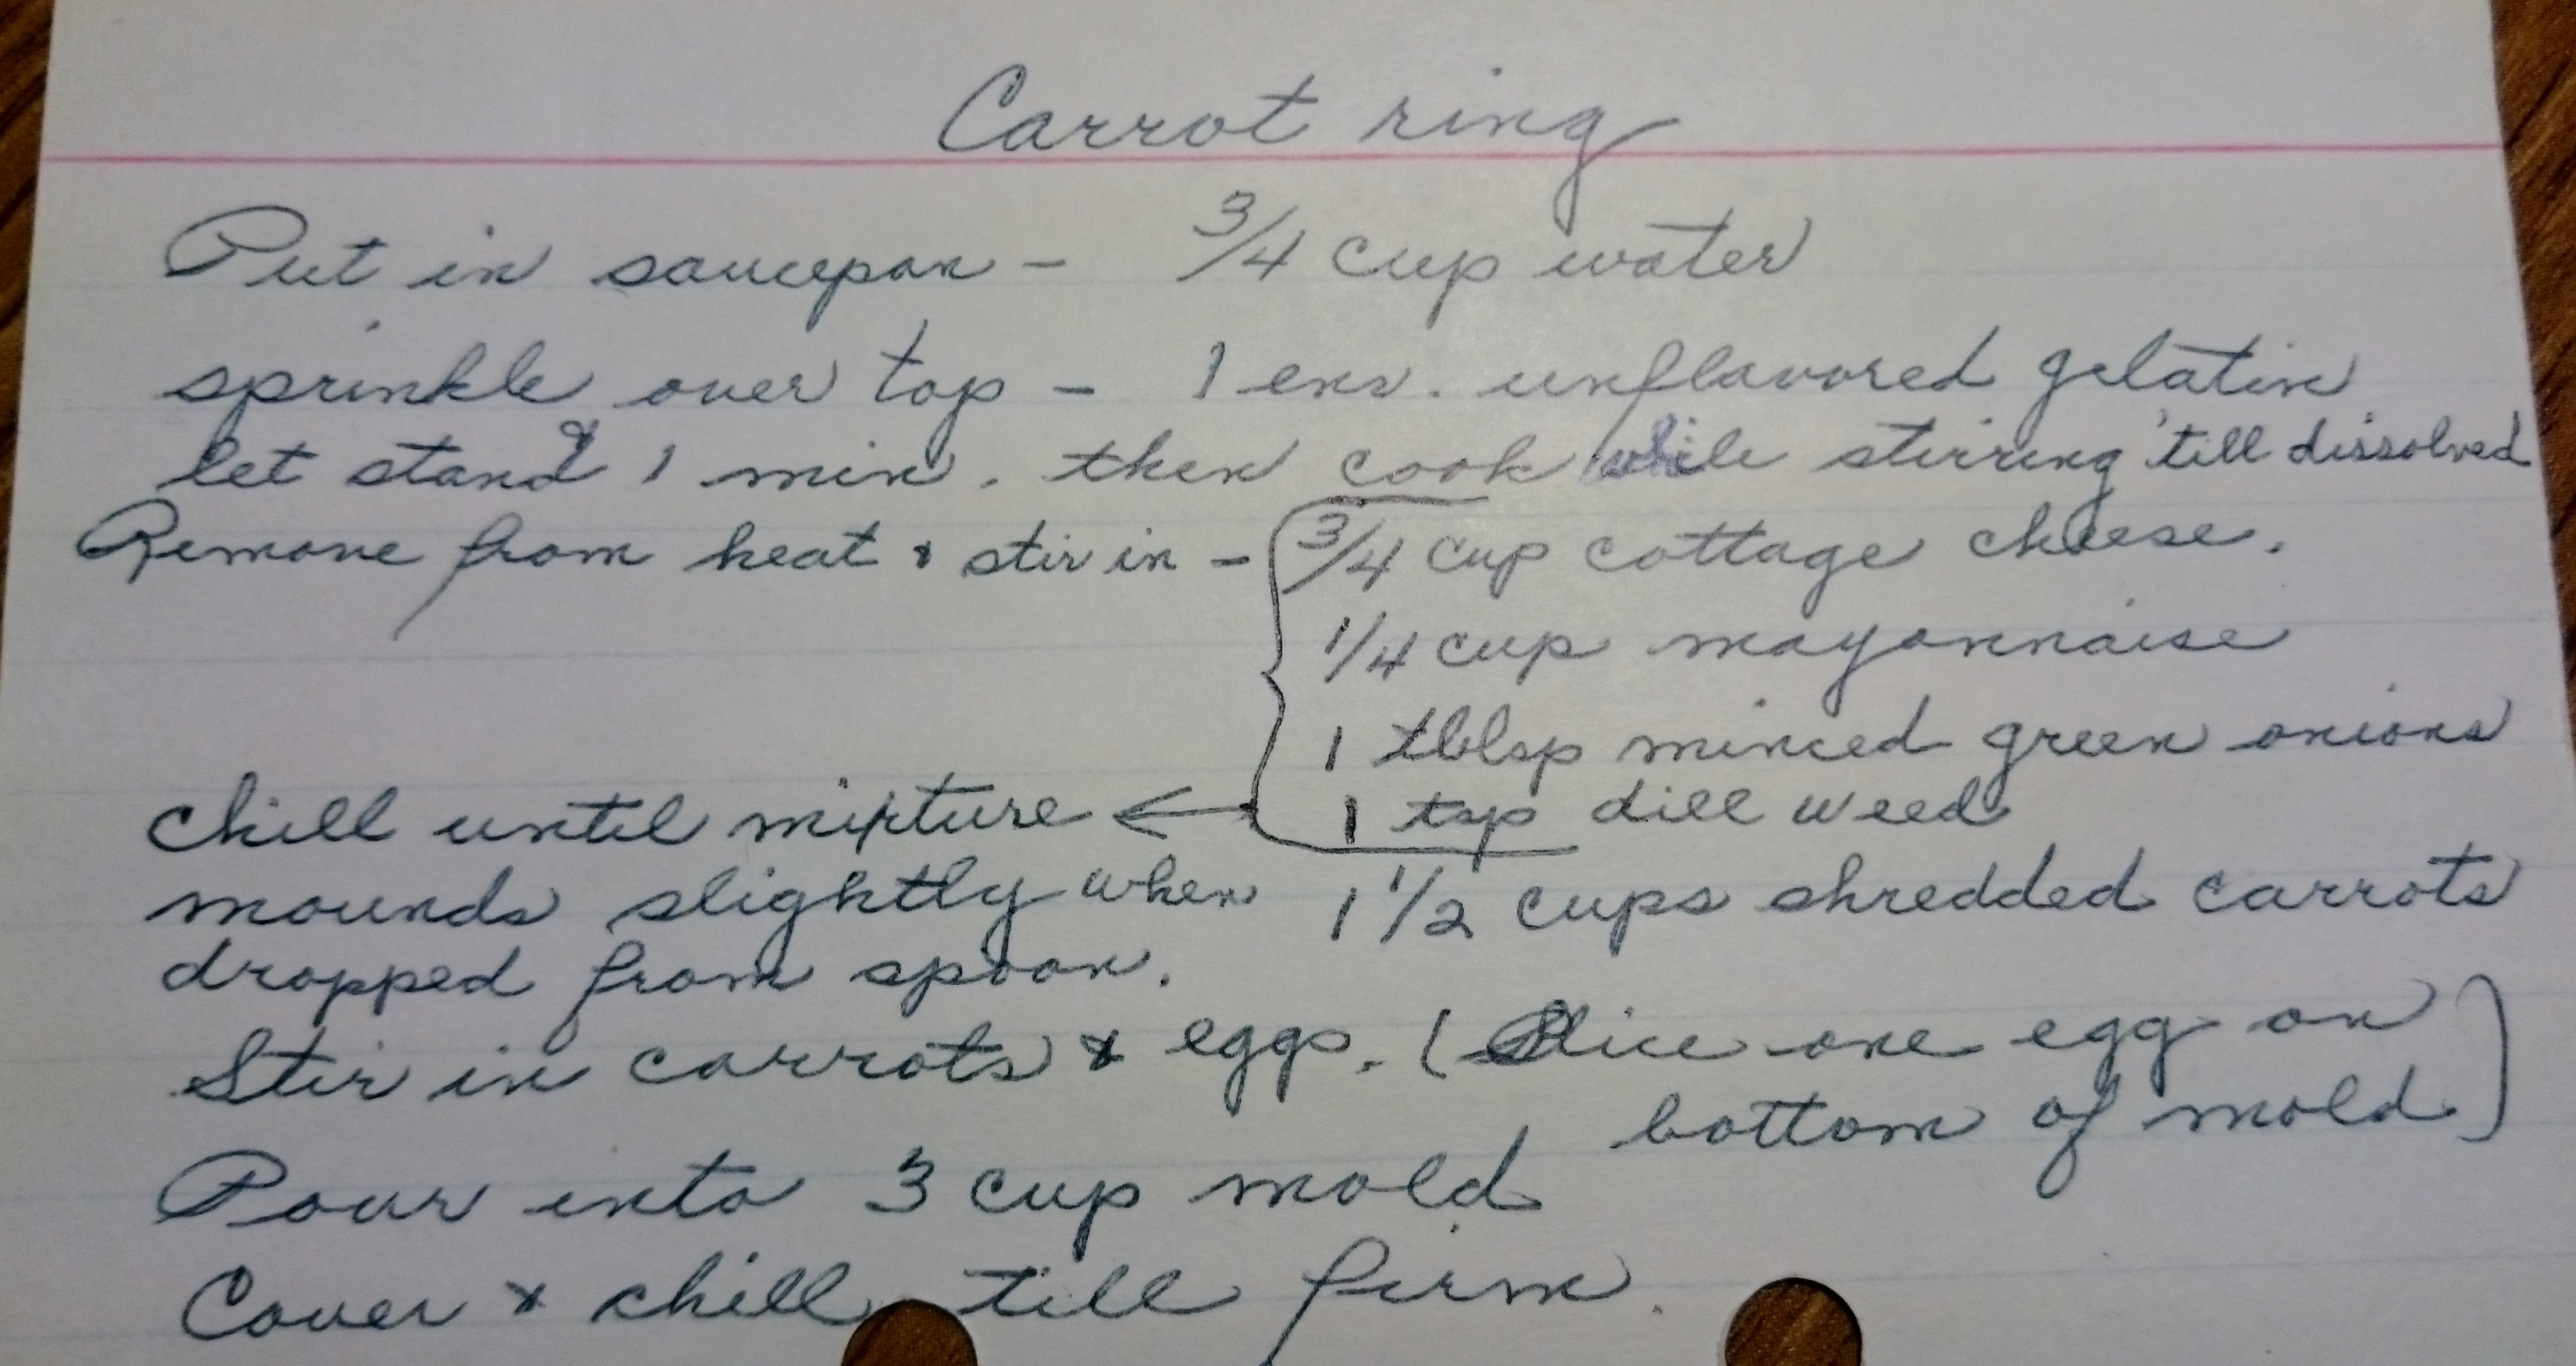 Carrot ring
Put in saucepan - 3/4 cup water
sprinkle over top - 1 env. unflavored gelatin
let stand 1 min. then cook while stirring 'till dissolved
Remove from heat & stir in - 3/4 cup cottage cheese.
1/4 cup mayonnaise
1 tblsp minced green onions
1 tsp dill weed
chill until mixture
mounds slightly when
dropped from spoon.
1 1/2 cups shredded carrots
Stir in carrots & eggs. (Slice one egg on
bottom of mold)
Pour into 3 cup mold
Cover & chill till firm.